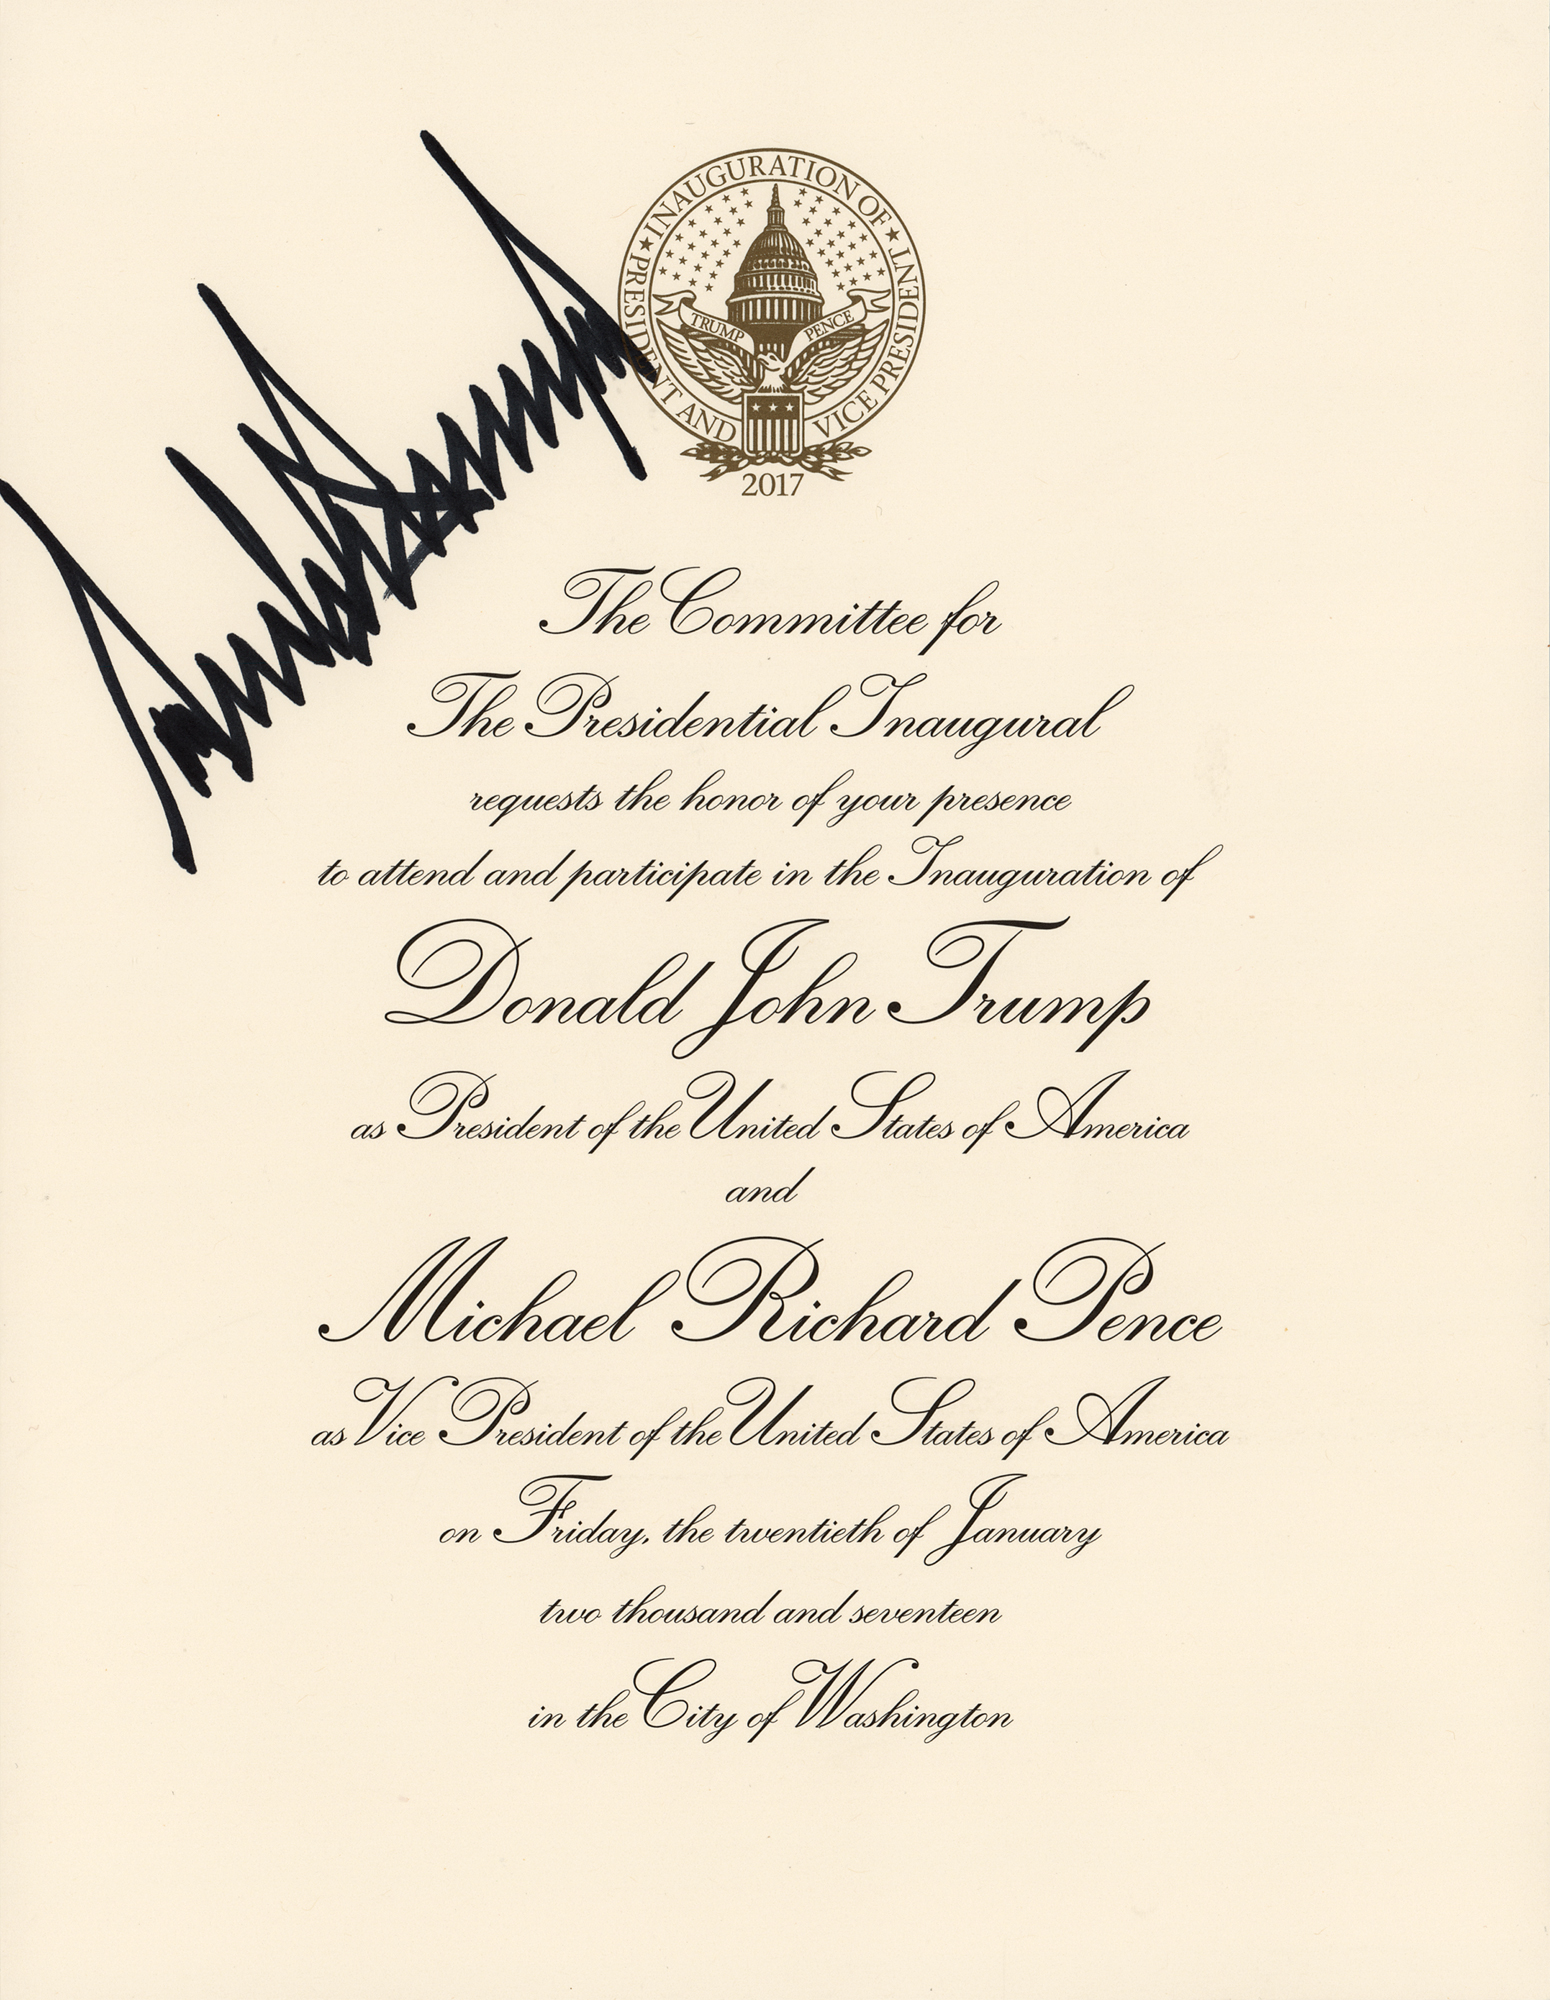 INAUGURATION OF
PRESIDENT AND VICE PRESIDENT
TRUMP PENCE
2017
The Committee for
The Presidential Inaugural
requests the honor of your presence
to attend and participate in the Inauguration of
Donald John Trump
as President of the United States of America
and
Michael Richard Pence
as Vice President of the United States of America
on Friday, the twentieth of January
two thousand and seventeen
in the City of Washington